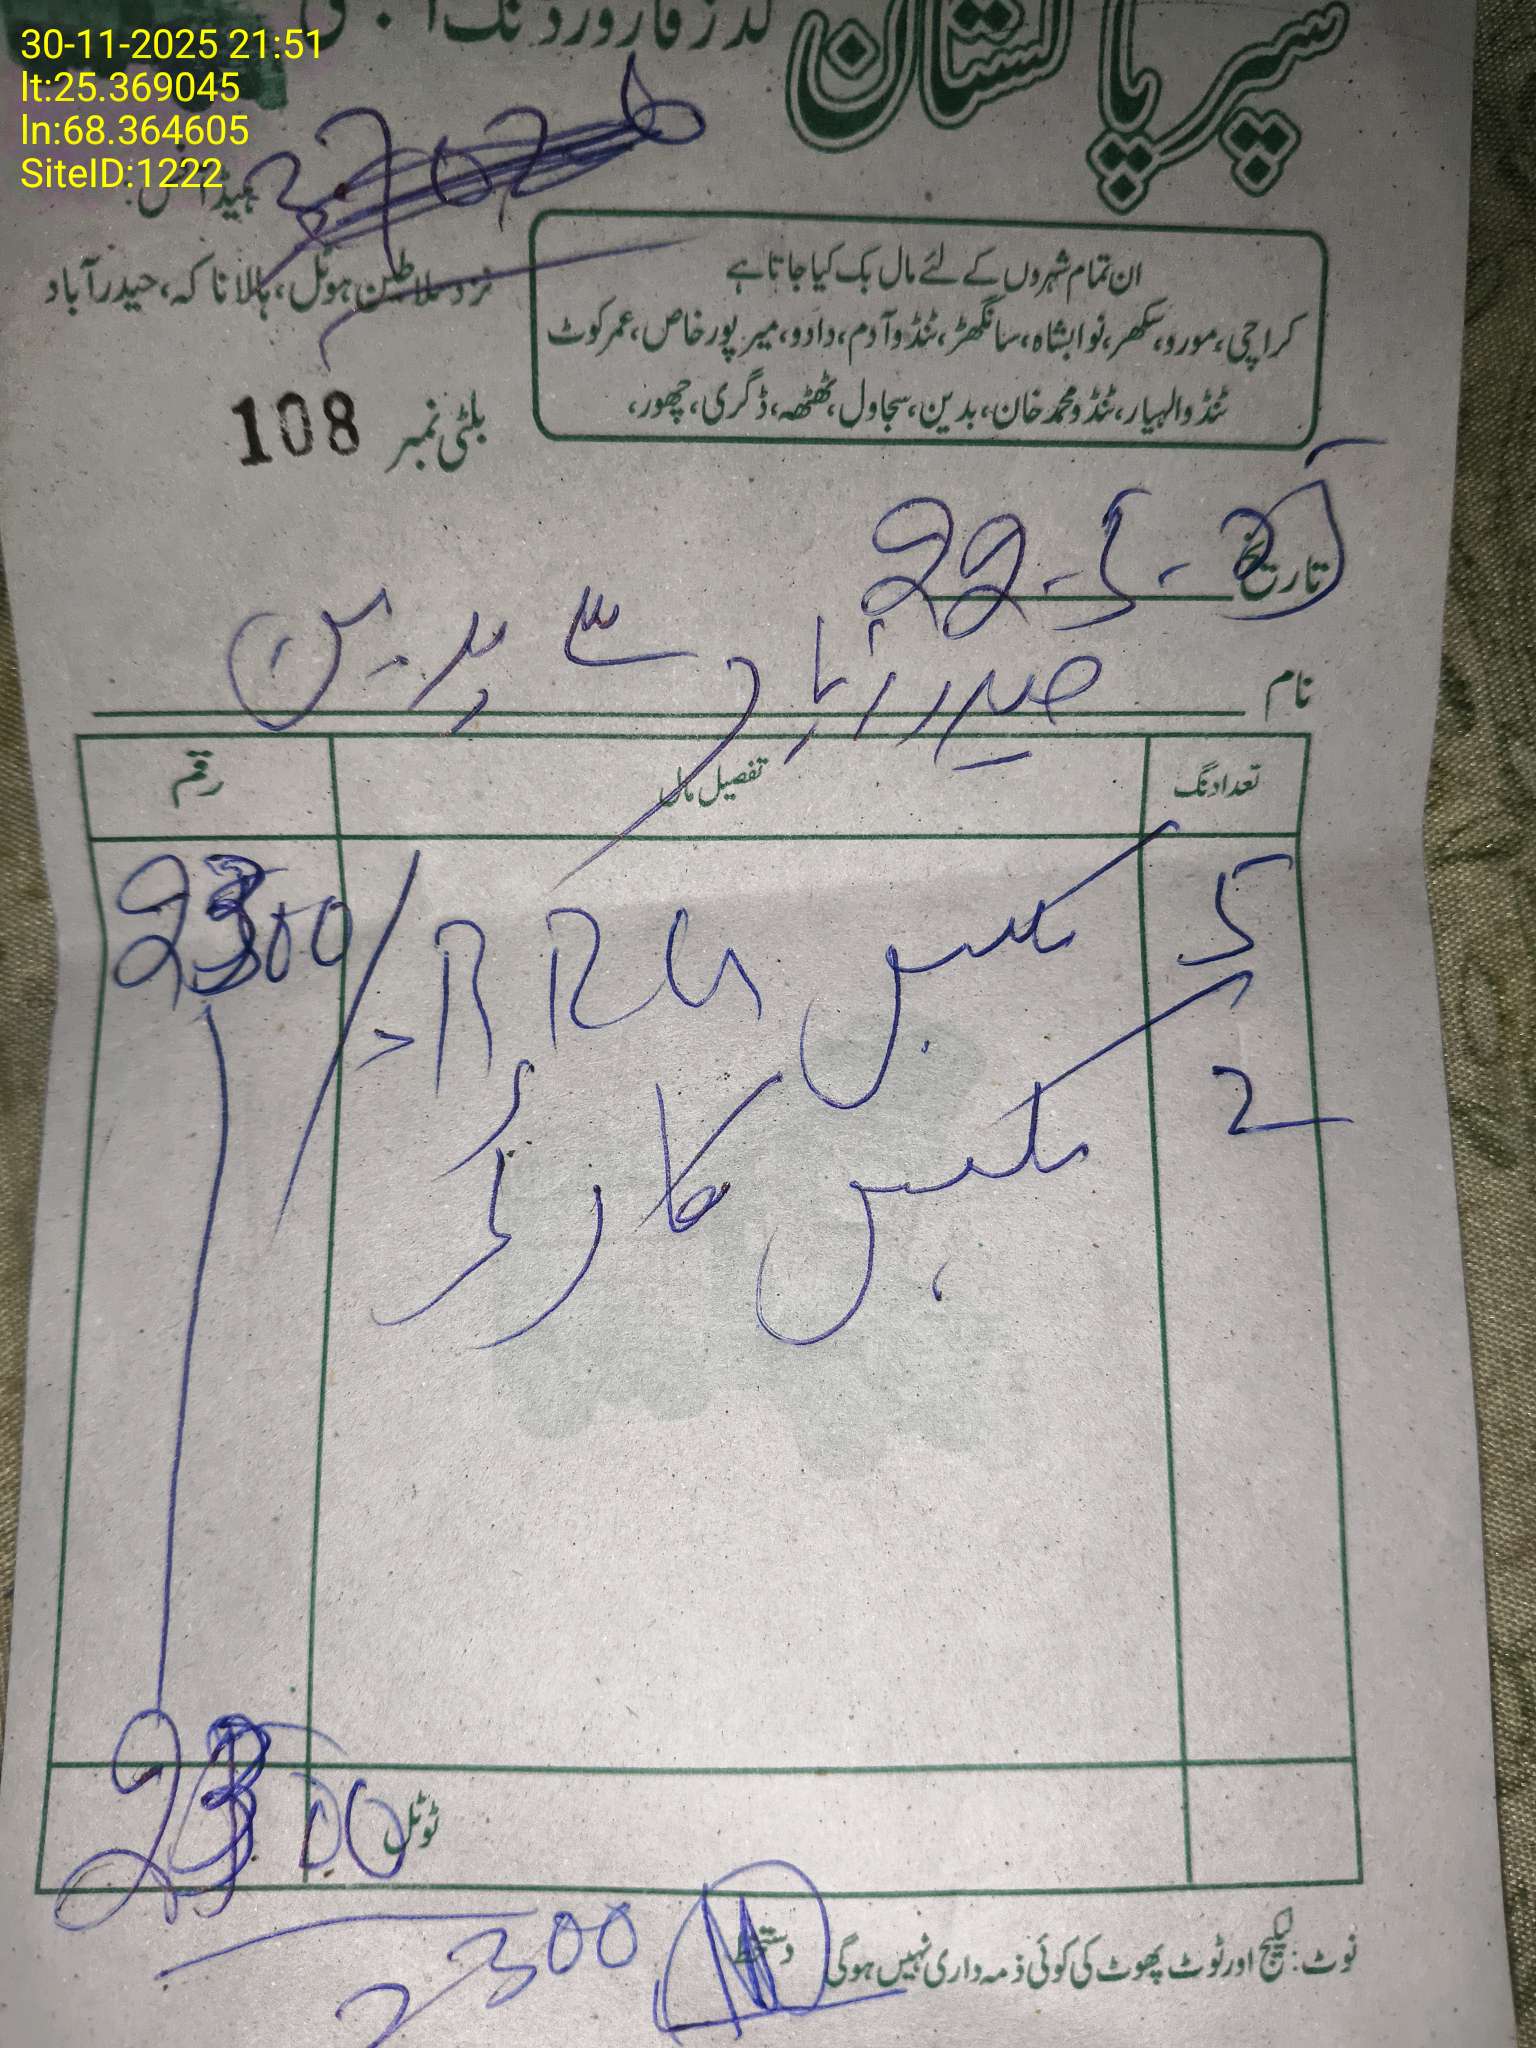 30-11-2025 21:51
lt:25.369045
ln:68.364605
SiteID:1222
سپر پاکستان
گڈز فارورڈنگ
ہیڈ آفس:
ہوٹل، ہالا ناکہ، حیدرآباد
ان تمام شہروں کے لئے مال بک کیا جاتا ہے
کراچی، مورو، سکھر، نوابشاہ، سانگھڑ، ٹنڈوآدم، دادو، میرپورخاص، عمرکوٹ
ٹنڈوالہیار، ٹنڈومحمدخان، بدین، سجاول، ٹھٹھہ، ڈگری، چھور،
بلٹی نمبر 108
تاریخ 22-5-25
نام حیدرآباد سے بدین
تعداد نگ تفصیل مال رقم
5 بکس RRU 2300
2 بکس کارڈ
ٹوٹل 2300
2300
نوٹ: لیکیج اور ٹوٹ پھوٹ کی کوئی ذمہ داری نہیں ہوگی دستخط